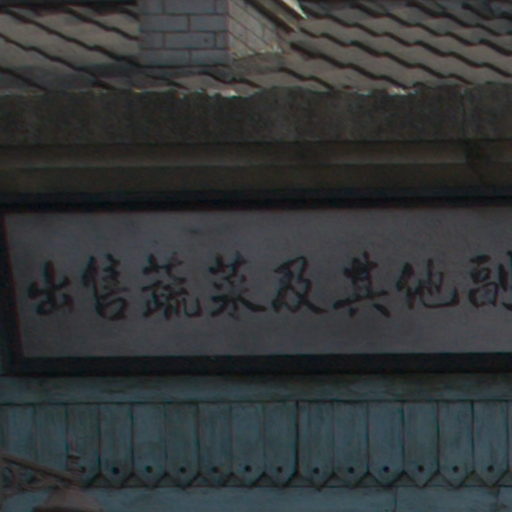 出售蔬菜及其他副